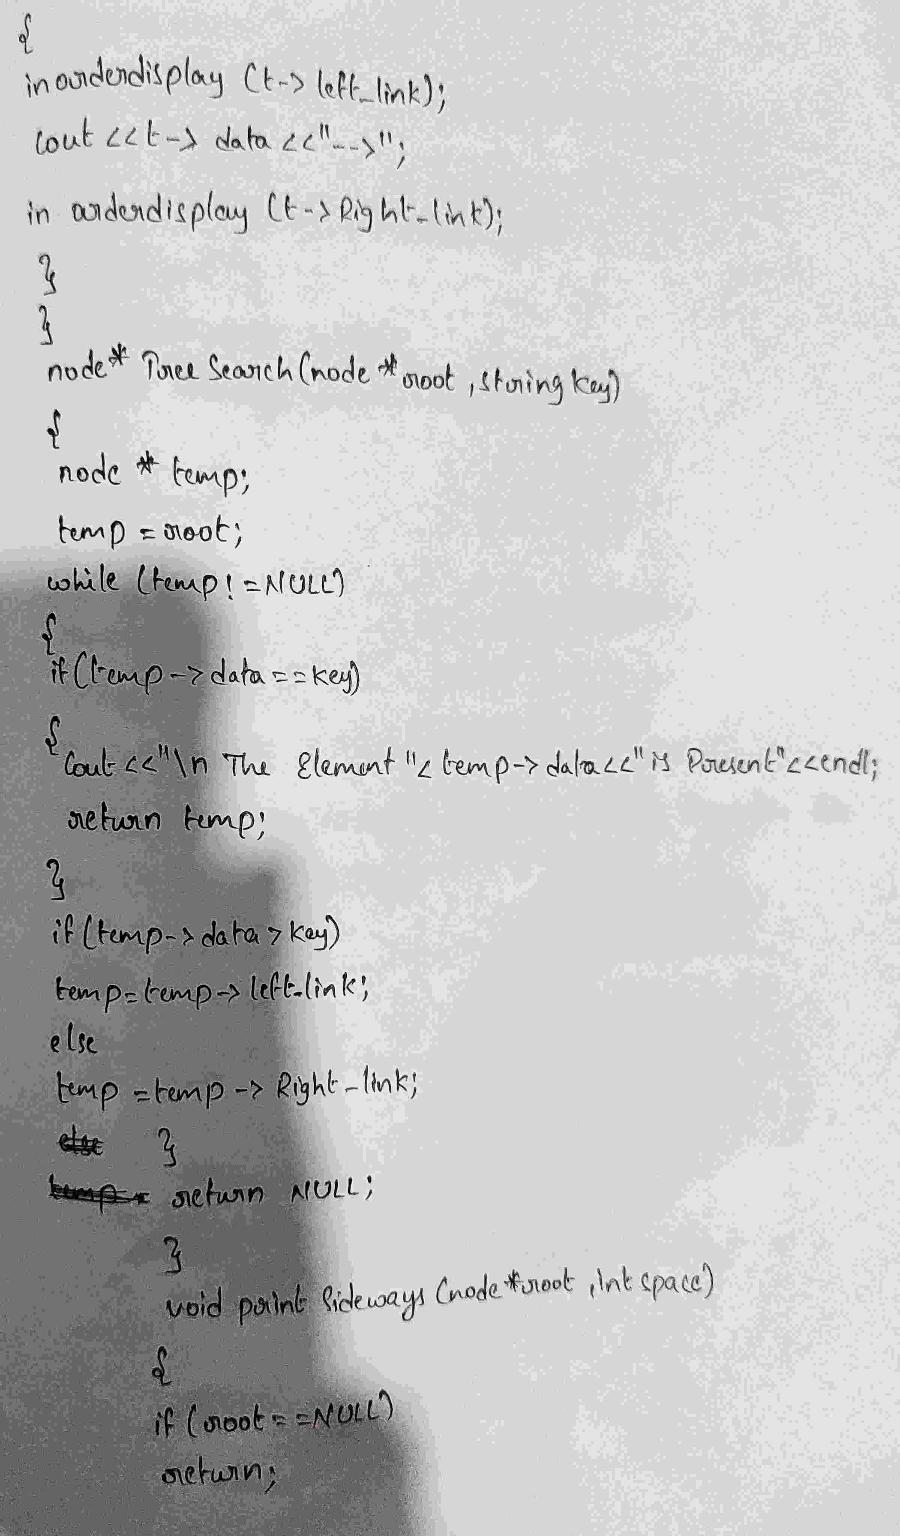 {
inorderdisplay (t-> left_link);
cout <<t-> data <<"-->";
in orderdisplay (t-> Right_link);
}
}
node* Tree Search (node *root, string key)
{
node * temp;
temp = root;
while (temp! =NULL)
{
if (temp -> data ==key)
{
Cout <<"\n The Element "< temp-> data<<" is Present"<<endl;
return temp;
}
if (temp-> data > key)
temp=temp-> left_link;
else
temp =temp -> Right_link;
else }
temp = return NULL;
}
void print Sideways (node *root, int space)
{
if (root = =NULL)
return;